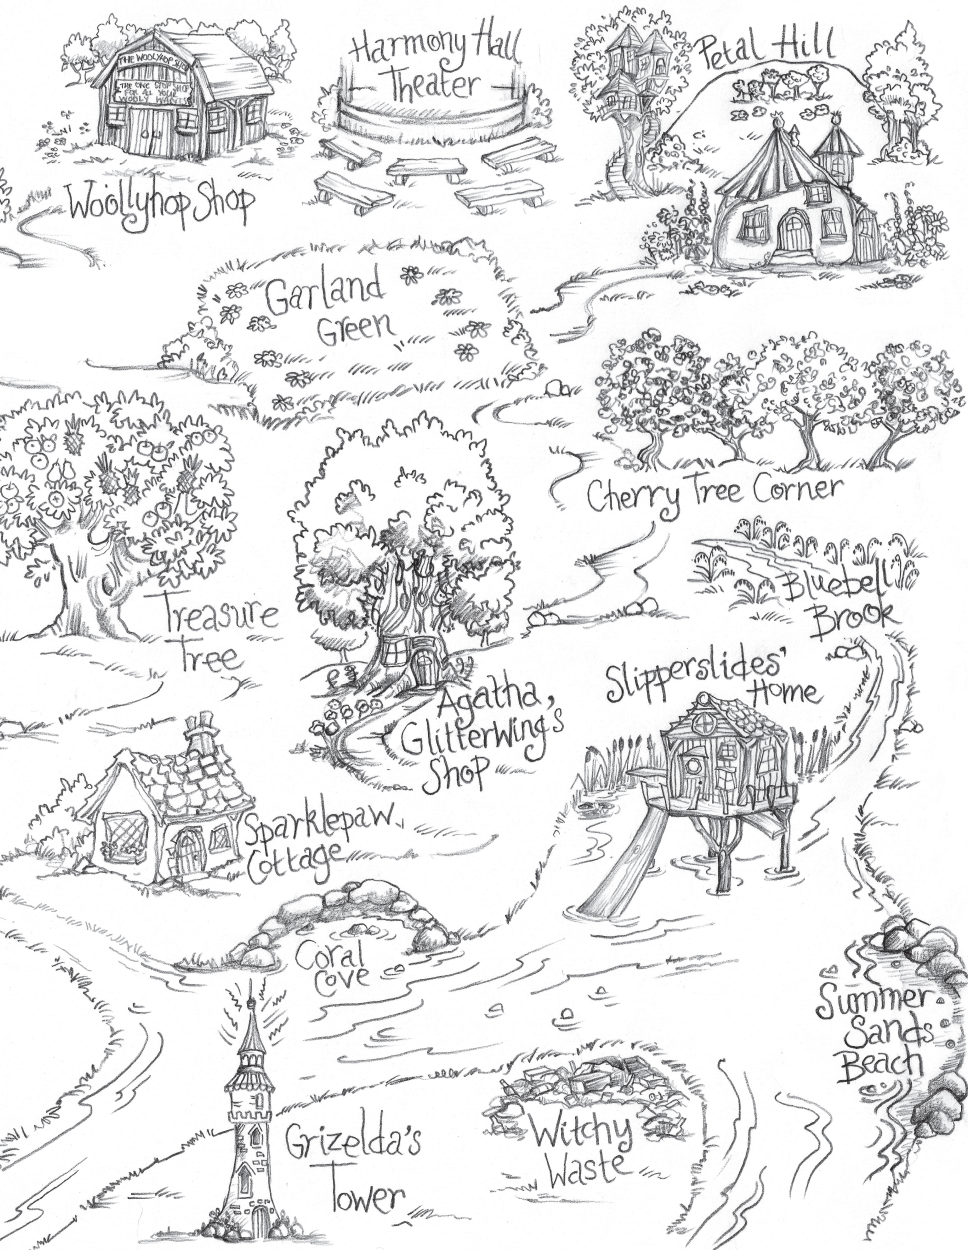 THE WOOLYHOP SHOP
THE ONE STOP SHOP
FOR ALL YOUR
WOOLY WANTS
Woollyhop Shop
Harmony Hall
Theater
Petal Hill
Garland
Green
Cherry Tree Corner
Treasure
Tree
Bluebell
Brook
Slipperslides'
Home
Agatha,
Glitterwing's
Shop
Sparklepaw
Cottage
Coral
Cove
Summer
Sands
Beach
Grizelda's
Tower
Witchy
Waste